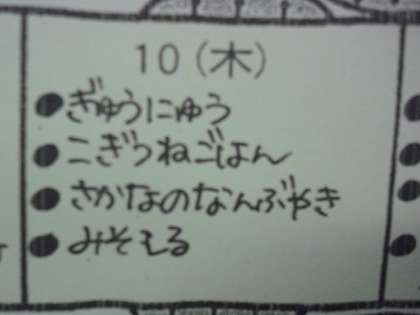 10(木)
●ぎゅうにゅう
●こぎつねごはん
●さかなのなんぶやき
●みそしる